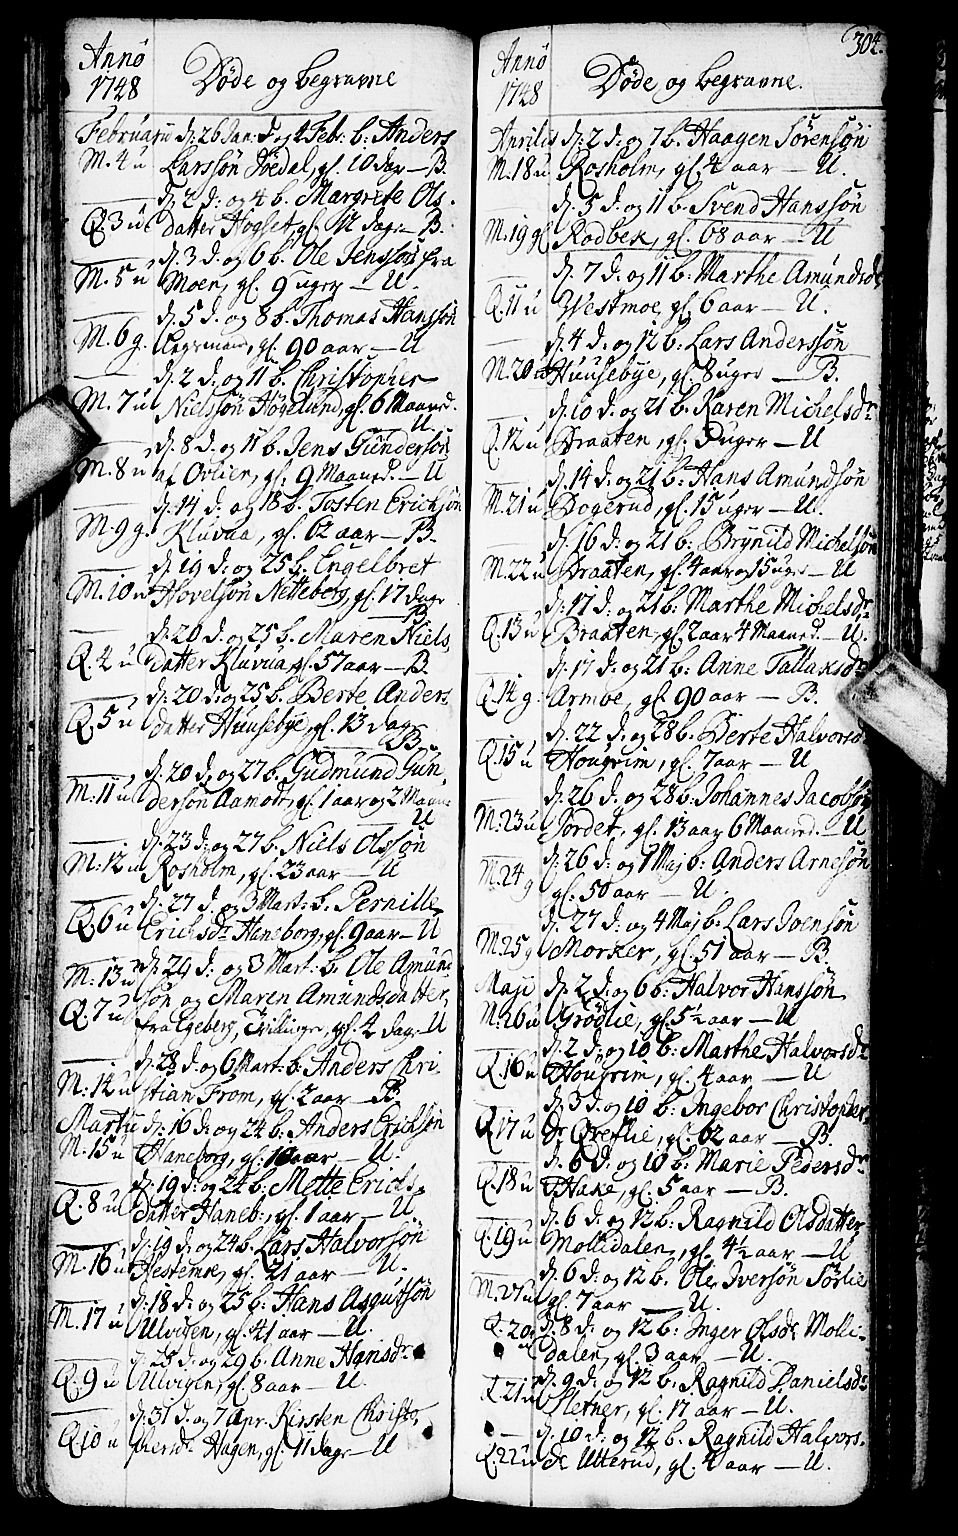 Anno
1748
Døde og begravne
Februarii d: 26 Jan: d: og 1 Febr: b: Anders
M. 4 u Larssøn Søedal, gl. 10 dage — B.
d: 2 d: og 4 b. Margrete Ols-
Q. 3 u datter Hogset, gl. 12 dage — B.
d: 3 d: og 6 b. Ole Jenssøn fra
M. 5 u Moen, gl. 9 uger — U.
d: 5 d. og 8 b. Thomas Hanssøn
M. 6 g. gl. 90 aar — U
d: 2 d: og 11 b. Christopher
M. 7 u Nielssøn Høgelund, gl. 6 Maaned.
U
d: 8 d. og 11 b. Jens Gundersøn
M. 8 u af Ovlien, gl. 9 Maaned. — U
d: 14 d. og 18 b. Tosten Erichsøn
M. 9 g. Kluvaa, gl. 62 aar — B.
d: 19 d: og 25 b. Engelbret
M. 10 u Hovelsøn Netteborg, gl. 17 dage
B.
d: 20 d: og 25 b. Maren Niels
Q. 4 u datter Kluvaa, gl. 57 aar — B.
d: 20 d: og 25 b. Berte Anders
Q. 5 u datter Huusebye, gl. 13 dage
B.
d. 20 d: og 27 b. Gudmund Gun-
M. 11 u dersøn Aamodt, gl. 1 aar og 2 Maan:
U
d: 23 d: og 27 b. Niels Olssøn
M. 12 u Rosholm, gl. 23 aar — U
d: 27 d: og 3 Mart: b. Pernille
Q. 6 u Erichsdr Haneborg, gl. 9 aar — U
M: 13 u d: 29 d: og 3 Mart: b. Ole Amund
Q. 7 u søn og Maren Amundsdatter,
fra Egeberg, Tvillinger, gl. 4 dage U
d: 28 d: og 6 Mart: b. Anders Chri-
M: 14 u stian From, gl. 2 aar — B.
Martii d: 16 d: og 24 b. Anders Erichsøn
M. 15 u Haneborg, gl. 10 aar — U.
d: 19 d: og 24 b. Mette Erichs-
Q. 8 u datter Haneb:, gl. 1 aar — U
d: 19 d: og 24 b. Lars Halvorsøn
M. 16 u Hestemoe, gl. 21 aar — U.
d: 18 d: og 25 b: Hans Asgutsøn
M. 17 u Ulvigen, gl. 41 aar — U.
d: 25 d: og 29 b. Anne Hansdr
Q. 9 u Ulvigen, gl. 8 aar — U.
d: 31 d: og 7 Apr. Kirsten Christo-
Q. 10 u phersdr Hagen, gl. 11 dage — U
304.
Anno
1748
Døde og begravne.
Aprilis d: 2 d: og 7 b. Haagen Sørensøn
M. 18 u Rosholm, gl. 4 aar — U.
d: 5 d. og 11 b. Svend Hanssøn
M. 19 g Rødbek, gl. 68 aar — U
d: 7 d: og 11 b: Marthe Amundsdr
Q. 11 u Westmoe, gl. 6 aar — U.
d: 4 d: og 12 b: Lars Anderssøn
M. 20 u Huusebye, gl. 8 uger — B.
d: 10 d. og 21 b. Karen Michelsdr
Q. 12 u Braaten, gl. 3 uger — U
d: 14 d: og 21 b: Hans Amundsøn
M. 21 u Bogerud, gl. 15 uger — U.
d: 16 d: og 21 b: Brynild Michelsøn
M. 22 u Braaten, gl. 4 aar og 15 uger — U
d: 17 d: og 21 b: Marthe Michelsdr
Q. 13 u Braaten, gl. 2 aar 4 Maaned. — U.
d: 17 d: og 21 b: Anne Tallaksdr
Q. 14 g Armoe, gl. 90 aar — B.
d: 22 d: og 28 b. Berte Halvorsdr
Q. 15 u Hougrim, gl. 7 aar — U
d: 26 d: og 28 b. Johannes Jacobsøn
M. 23 u Jordet, gl. 13 aar 6 Maaned. — U
d: 26 d: og 1 Maj b: Anders Arnesøn
M. 24 g gl. 50 aar — U.
d: 27 d: og 4 Maj b: Lars Ivensøn
M. 25 g Morker, gl. 51 aar — B.
Maji d: 2 d: og 6 b: Halvor Hanssøn
M. 26 u Grødlie, gl. 5½ aar — U
d: 2 d: og 10 b: Marthe Halvorsdr
Q. 16 u Hougrim, gl. 4 aar — U
d: 3 d: og 10 b. Ingebor Christopher
Q. 17 u dr Øreflie, gl. 62 aar — B.
d: 6 d: og 10 b: Marie Pedersdr
Q. 18 u Hake, gl. 5 aar — B.
d: 6 d: og 12 b: Ragnild Olsdatter
Q. 19 u Mollidalen, gl. 4½ aar — U
d: 6 d: og 12 b. Ole Iversøn Sørlie
M. 27 u gl. 7 aar — U.
Q. 20 u d: 8 d: og 12 b: Inger Olsdr Molli-
dalen, gl. 3 aar — U.
d: 9 d: og 12 b: Ragnild Danielsdr
Q. 21 u Sletner, gl. 17 aar — U.
d: 10 d: og 12 b. Ragnild Halvors-
Q. 22 u dr Utterud, gl. 4 aar — U.